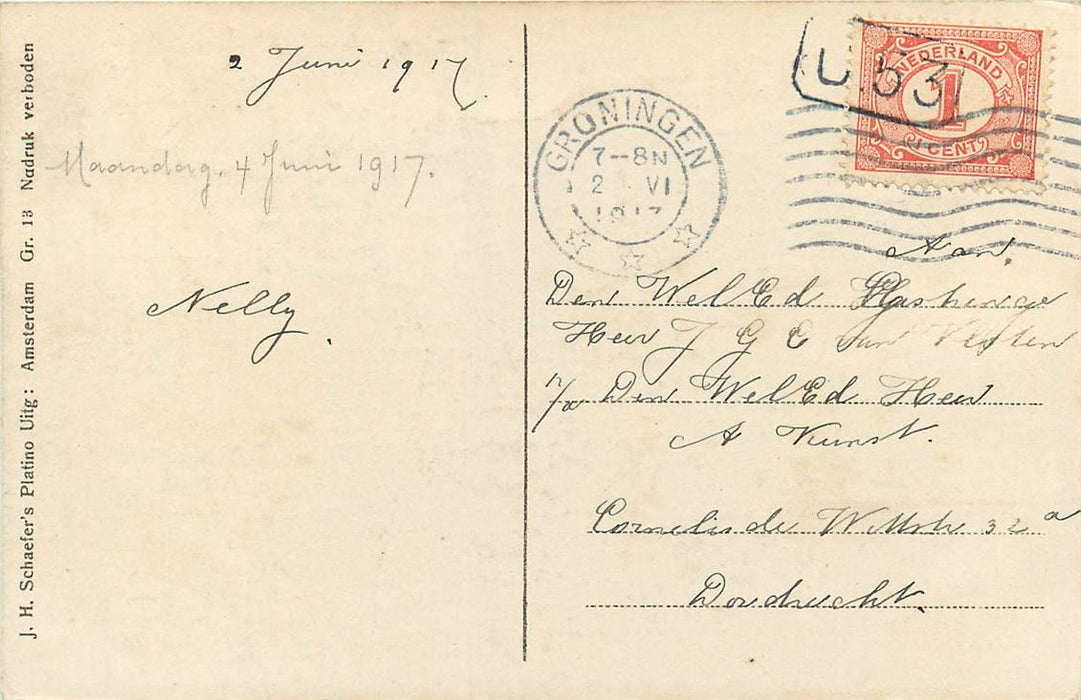 J. H. Schaefer's Platino Uitg: Amsterdam Gr. 13 Nadruk verboden
2 Juni 1917.
Maandag. 4 Juni 1917.
Nelly.
GRONINGEN
7-8N
2 VI
1917
U.531
NEDERLAND
1
CENT
Aan.
Den WelEd
Heer J G C van
p/a Den WelEd Heer
A Kunst.
Cornelis de Wittstr 32a
Dordrecht.